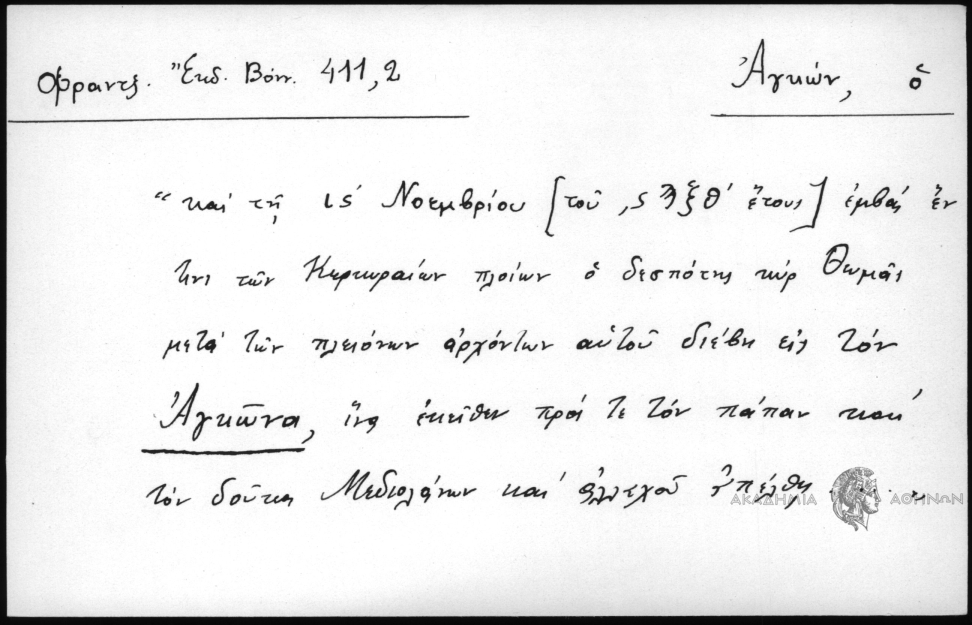 Φραντζ. Ἔκδ. Βόνν. 411,2
Ἀγκών, ὁ
“καί τῇ ιϛ΄ Νοεμβρίου [τοῦ ͵ϛϠξθ΄ ἔτους] ἐμβάς ἐν
τινι τῶν Κερκυραίων πλοίων ὁ δεσπότης κύρ Θωμᾶς
μετά τῶν πλειόνων ἀρχόντων αὐτοῦ διέβη εἰς τόν
Ἀγκῶνα, ἵνα ἐκεῖθεν πρός τε τόν πάπαν καί
τόν δοῦκα Μεδιολάνων καί ἀλλαχοῦ ἀπέλθῃ . . . „
ΑΚΑΔΗΜΙΑ ΑΘΗΝΩΝ